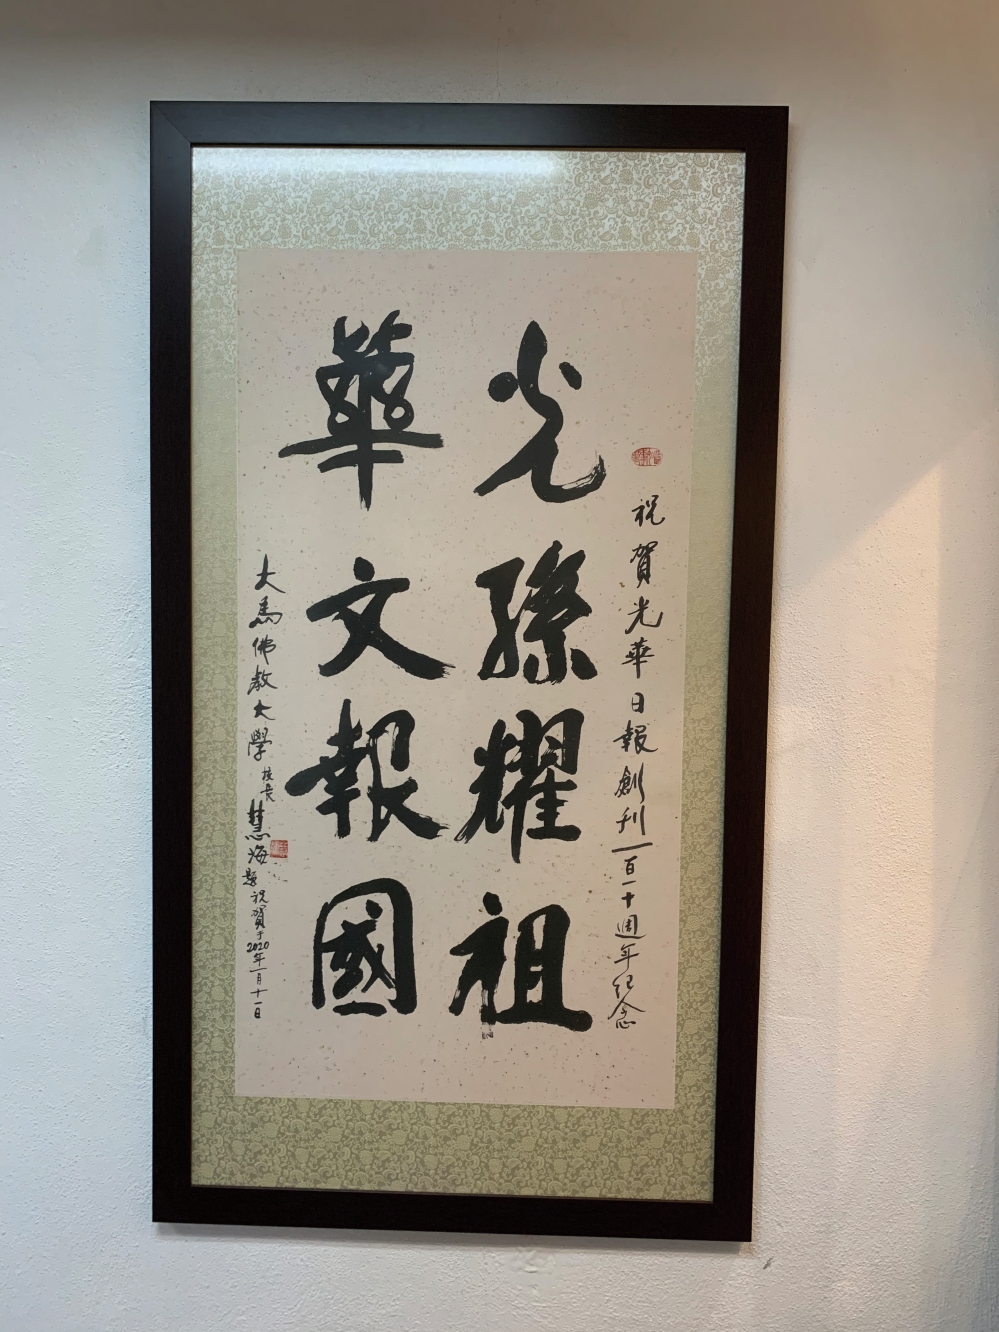 祝賀光華日報創刊一百一十週年紀念
光孫耀祖
華文報國
大馬佛教大學校長慧海題祝賀于2020年一月十一日